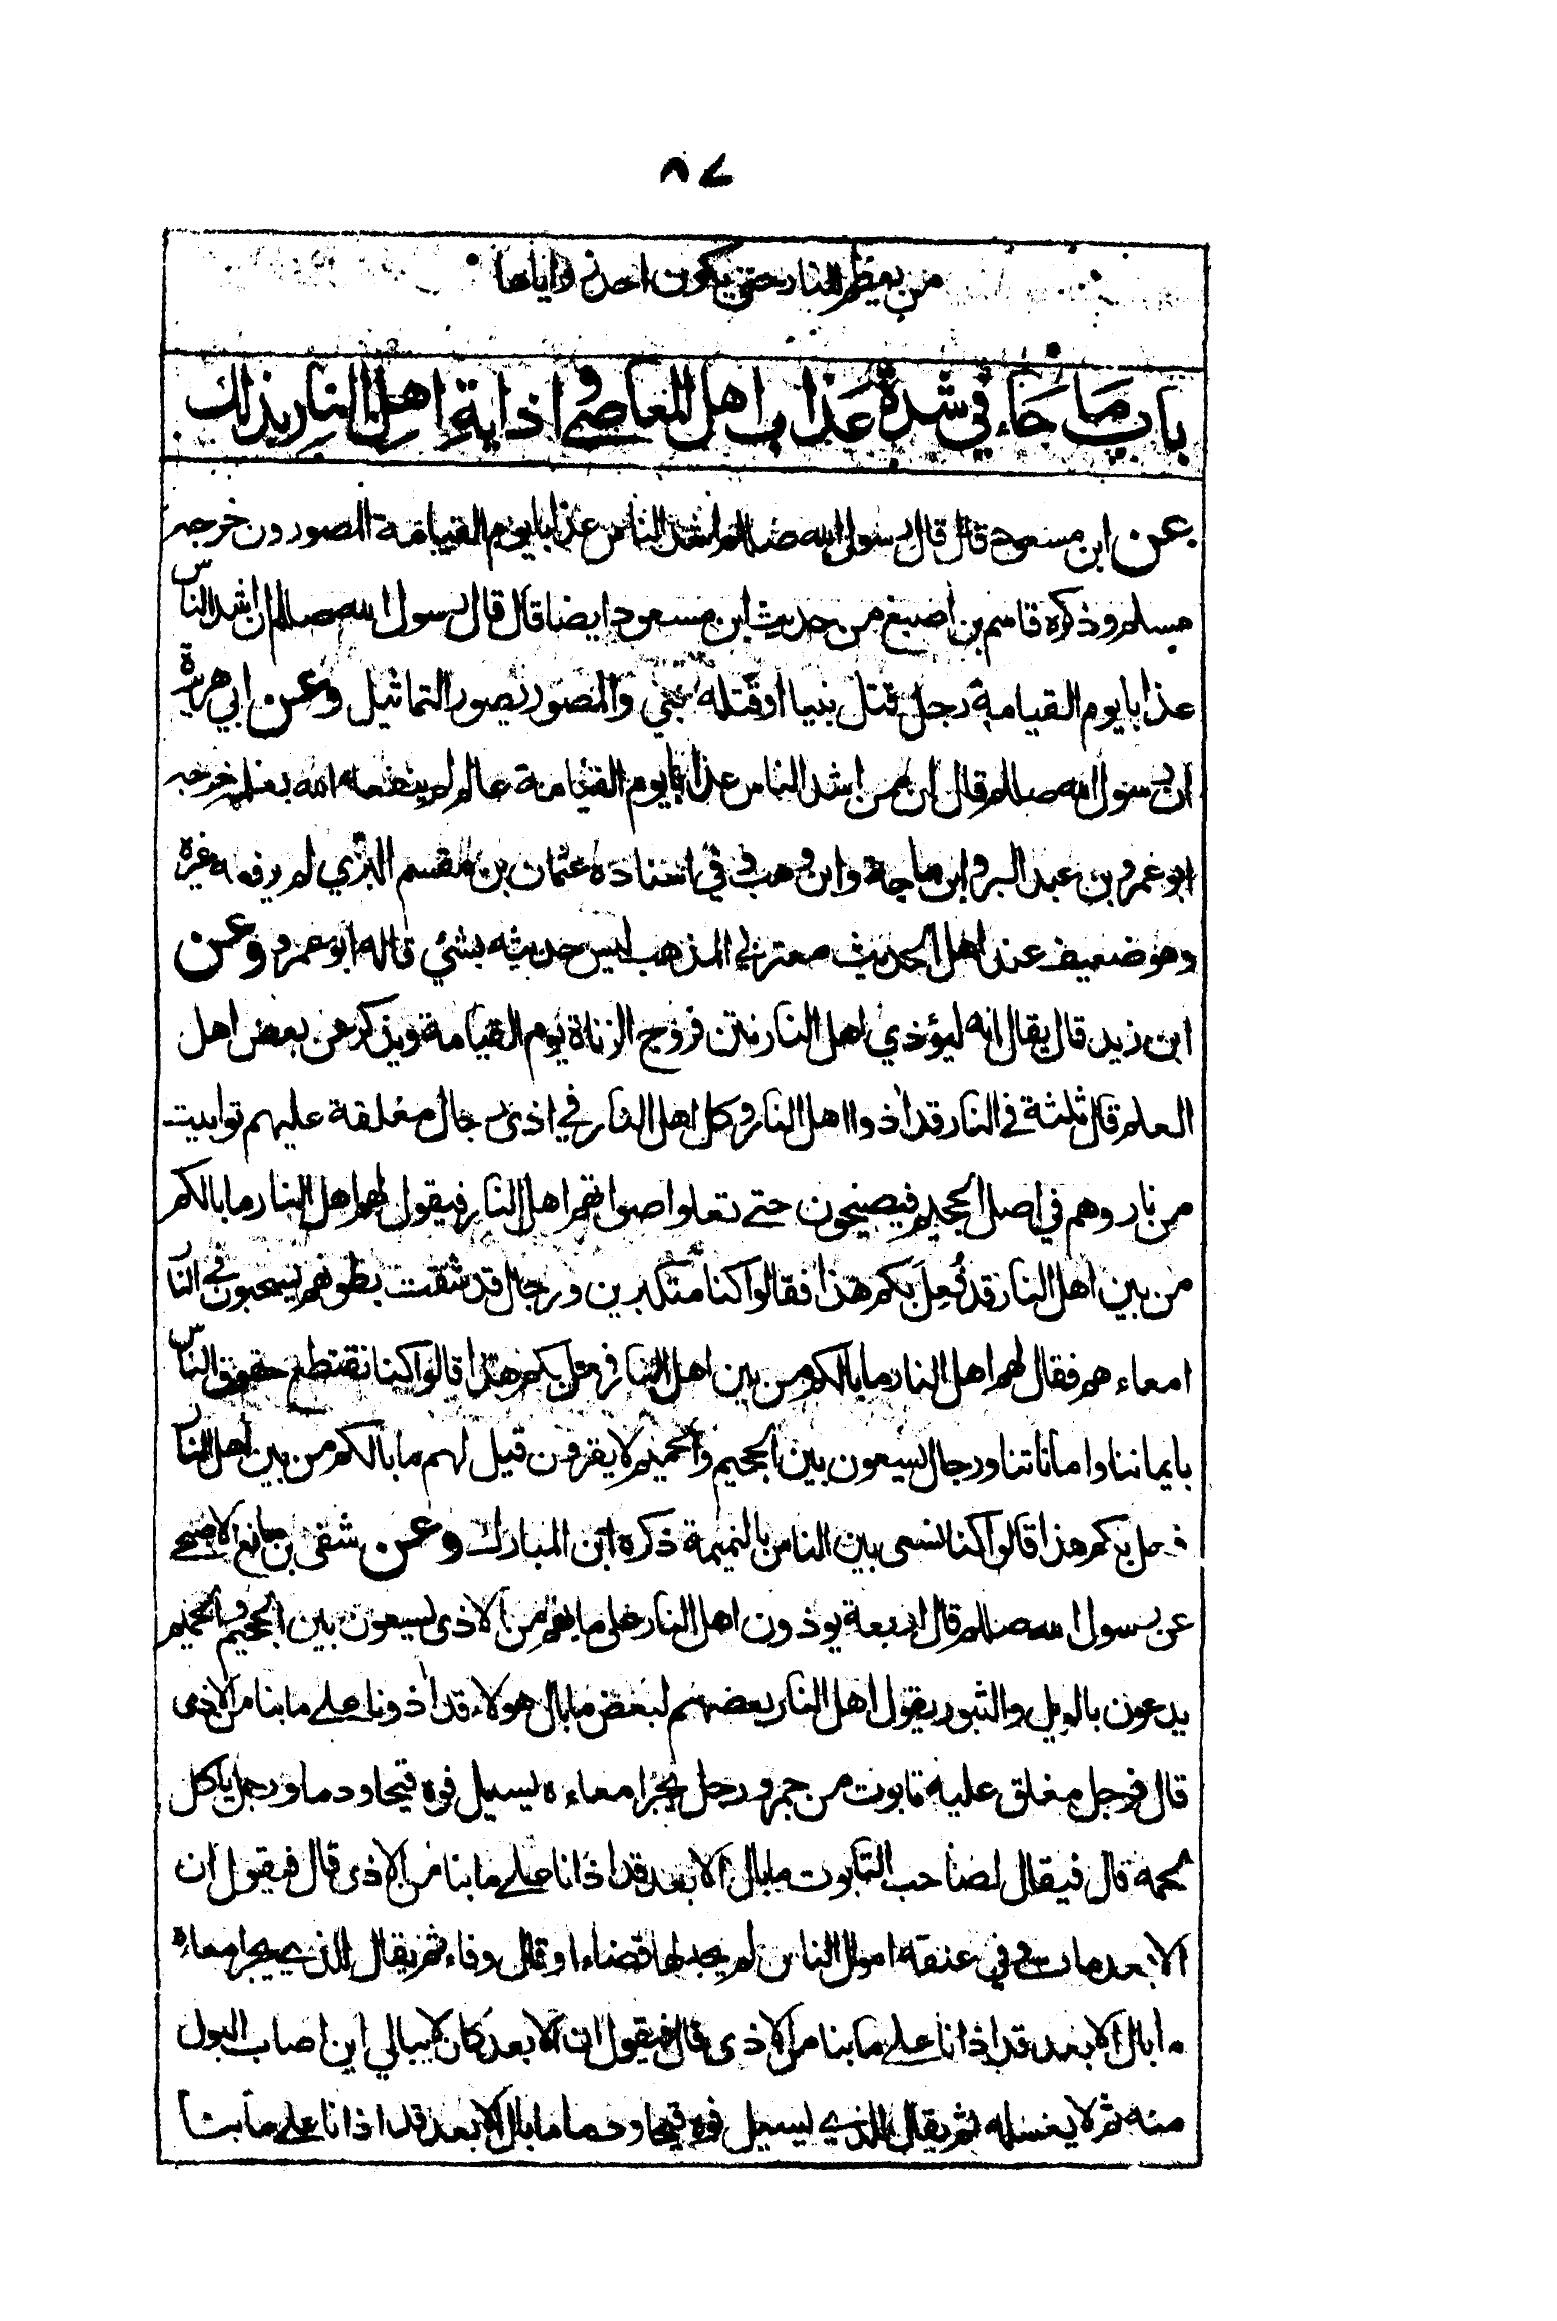 ٨٧
من يعظم للنار حتى يكون احدزواياها
باب ما جاء في شدة عذاب اهل المعاصي واذاية اهل النار بذلك
عن ابن مسعود قال قال رسول الله صللم اشد الناس عذابا يوم القيامة المصورون خرجه
مسلم وذكره قاسم بن اصبغ من حديث ابن مسعود ايضا قال قال رسول الله صللم ان اشد الناس
عذابا يوم القيامة رجل قتل نبيا او قتله نبي والمصور يصور التماثيل وعن ابي هريرة
ان رسول الله صللم قال ان من اشد الناس عذابا يوم القيامة عالم لم ينفعه الله بعلمه خرجه
ابو عمرو بن عبد البر وابن ماجة وابن وهب وفي اسناده عثمان بن مقسم البزي لم يرفعه غيره
وهو ضعيف عند اهل الحديث معتزلي المذهب ليس حديثه بشئي قاله ابو عمرو وعن
ابن زيد قال يقال انه ليؤذي اهل النار نتن فروج الزناة يوم القيامة ويذكر عن بعض اهل
العلم قال ثلثة في النار قد اذوا اهل النار وكل اهل النار في اذى رجال مغلقة عليهم توابيت
من نار وهم في اصل الجحيم فيصيحون حتى تعلوا صواتهم اهل النار فيقول لهم اهل النار ما بالكم
من بين اهل النار قد فُعِلَ بكم هذا فقالوا كنا متكبرين ورجال قد شقت بطونهم يسحبون في النار
امعاءهم فقال لهم اهل النار ما بالكم من بين اهل النار فعل بكم هذا قالوا كنا نقتطع حقوق الناس
بايماننا واماناتنا ورجال يسعون بين الجحيم والحميم لا يقرون قيل لهم ما بالكم من بين اهل النار
فعل بكم هذا قالوا كنا نسعى بين الناس بالنميمة ذكره ابن المبارك وعن شفى بن ماتع الاصبحي
عن رسول الله صللم قال اربعة يوذون اهل النار على ما بهم من الاذى يسعون بين الجحيم والحميم
يدعون بالويل والثبور يقول اهل النار بعضهم لبعض ما بال هولاء قد اذونا على ما بنا من الاذى
قال فرجل مغلق عليه تابوت من جمر ورجل يجر امعاءه يسيل فوه قيحا ودما ورجل ياكل
لحمه قال فيقال لصاحب التابوت ما بال الابعد قد اذانا على ما بنا من الاذى قال فيقول ان
الابعد مات وفي عنقه اموال الناس لم يجد لها قضاء او قال وفاء ثم يقال للذي يجر امعاءه
ما بال الابعد قد اذانا على ما بنا من الاذى قال فيقول ان الابعد كان لا يبالي اين اصاب البول
منه ثم لا يغسله ثم يقال للذي يسيل فوه قيحا ودما ما بال الابعد قد اذانا على ما بنا